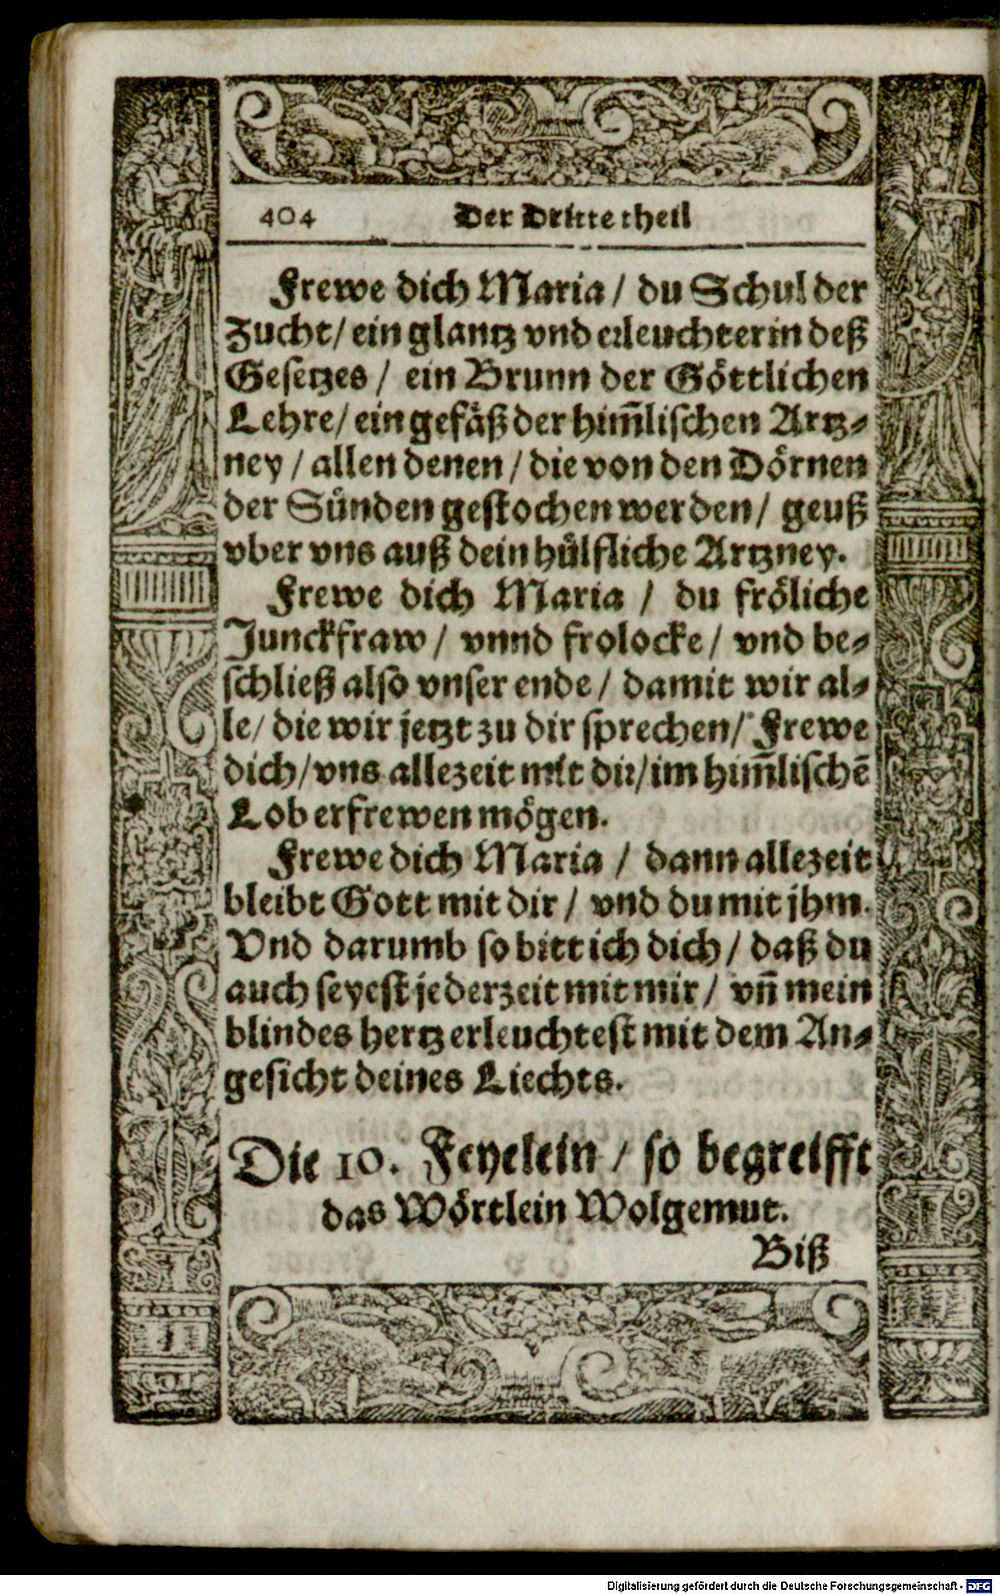 404 Der Dritte theil
Frewe dich Maria / du Schul der
Zucht / ein glantz vnd erleuchterin deß
Gesetzes / ein Brunn der Göttlichen
Lehre / ein gefäß der him̃lischen Artz-
ney / allen denen / die von den Dörnen
der Sünden gestochen werden / geuß
vber vns auß dein hülfliche Artzney.
Frewe dich Maria / du fröliche
Junckfraw / vnnd frolocke / vnd be-
schließ also vnser ende / damit wir al-
le / die wir jetzt zu dir sprechen / Frewe
dich / vns allezeit mit dir / im him̃lischẽ
Lob erfrewen mögen.
Frewe dich Maria / dann allezeit
bleibt Gott mit dir / vnd du mit jhm.
Vnd darumb so bitt ich dich / daß du
auch seyest jederzeit mit mir / vñ mein
blindes hertz erleuchtest mit dem An-
gesicht deines Liechts.
Die 10. Feyelein / so begreifft
das Wörtlein Wolgemut.
Biß
Digitalisierung gefördert durch die Deutsche Forschungsgemeinschaft - DFG